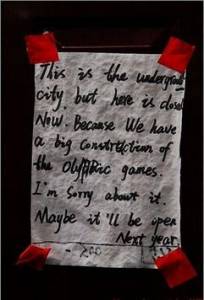 This is the underground
city, but here is closed
Now. Because We have
a big Construction of
the Olympic games.
I'm Sorry about it.
Maybe it'll be open
Next year.